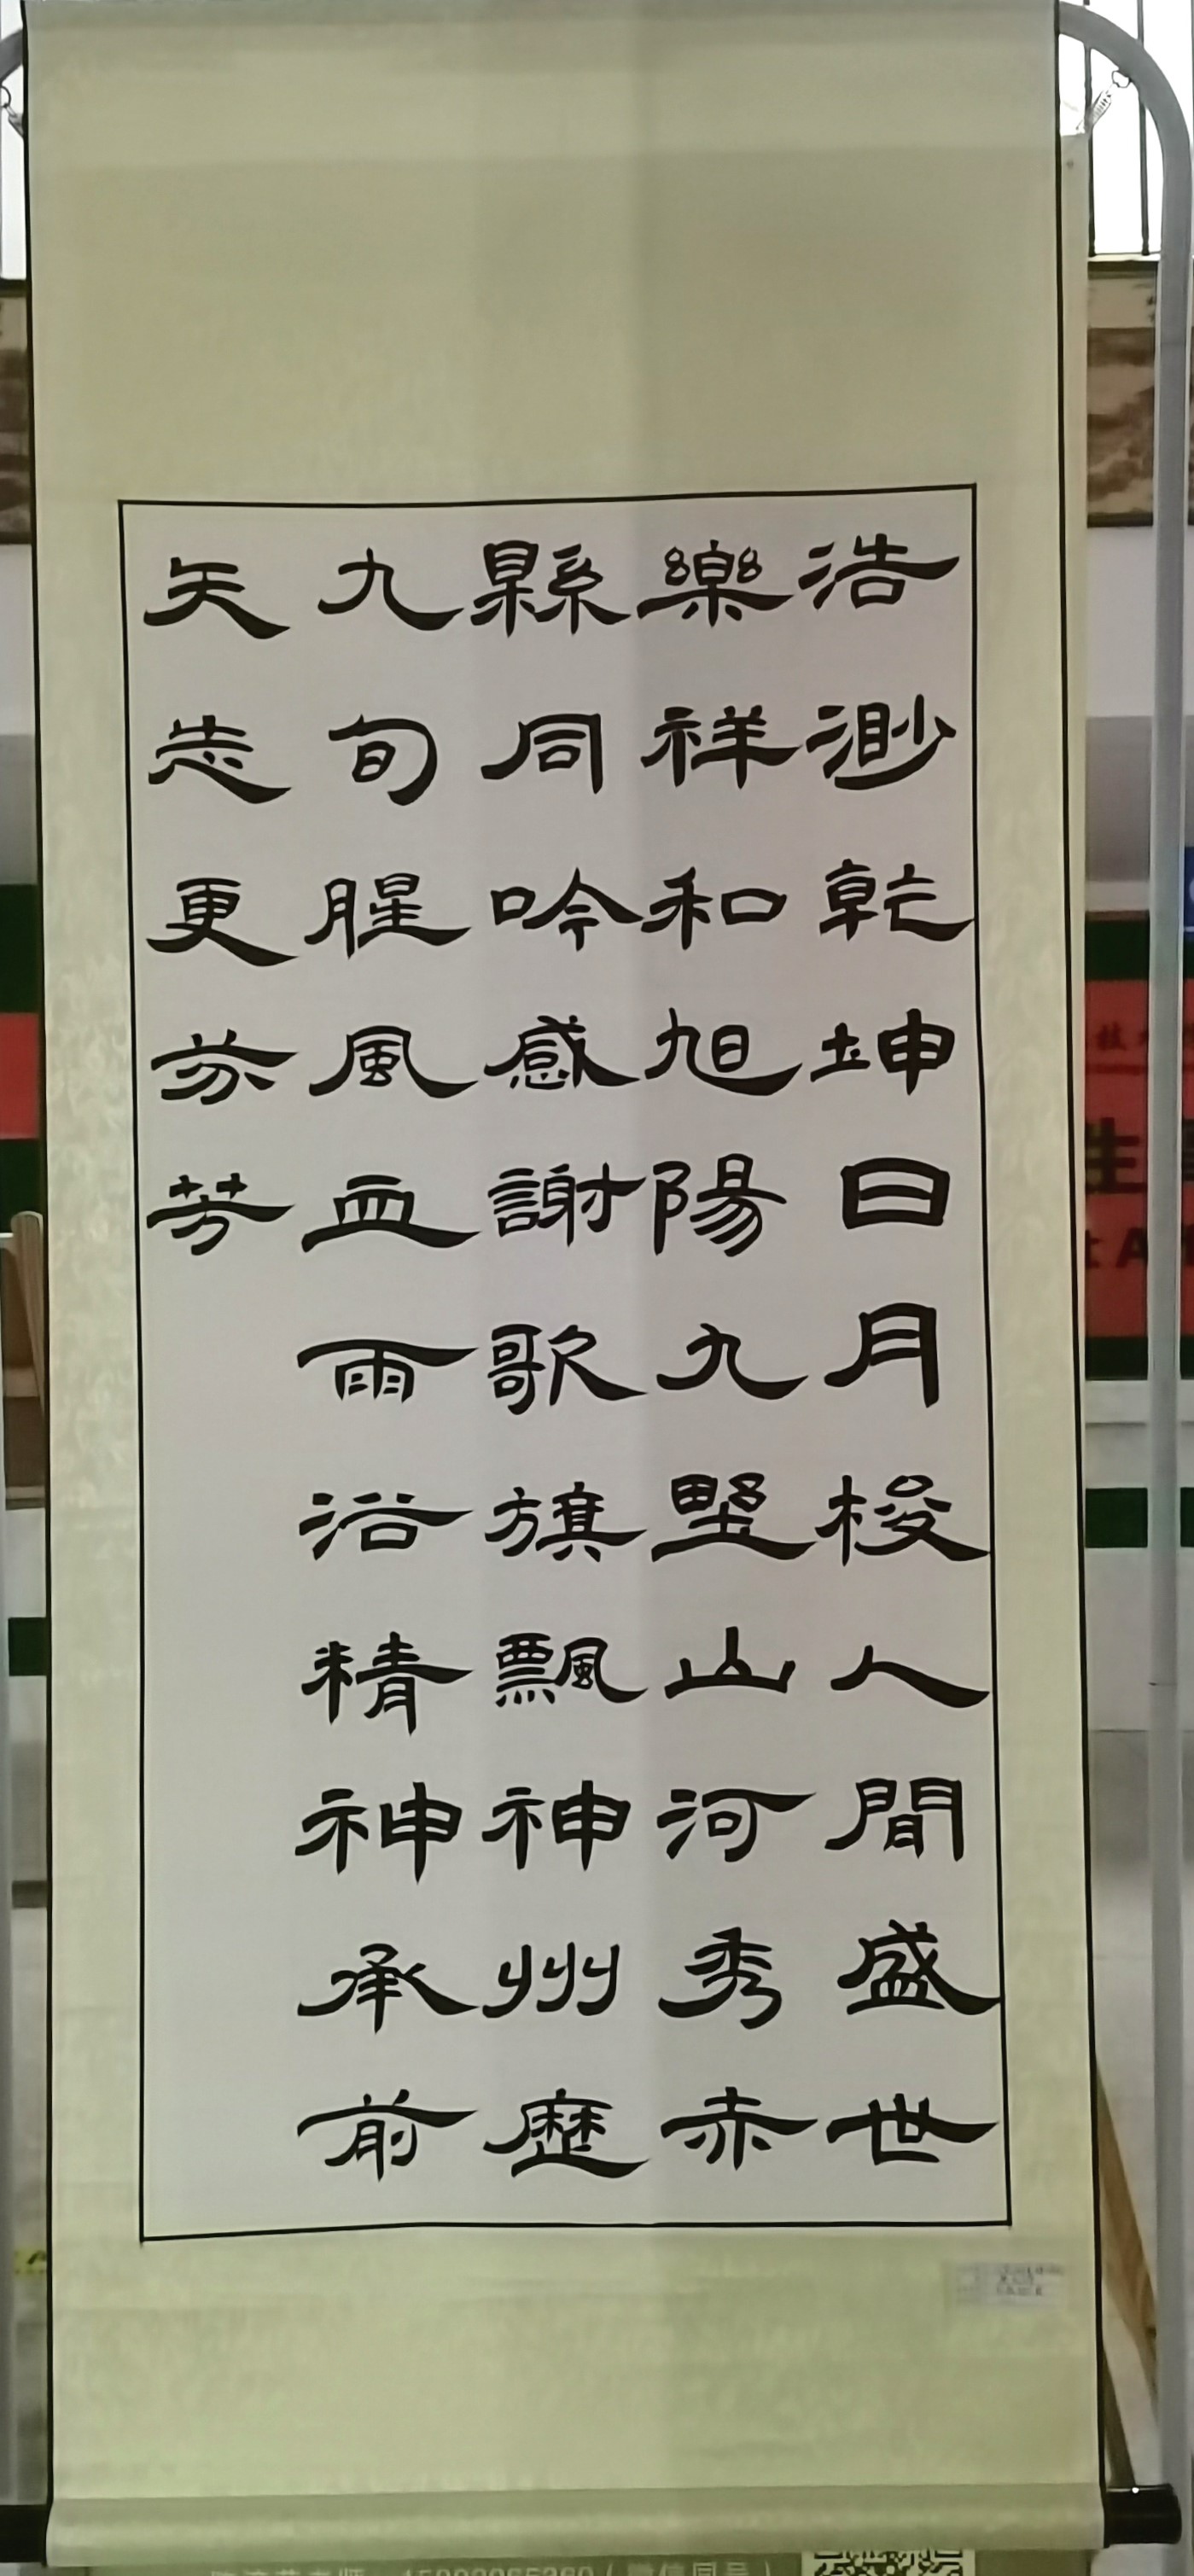 浩渺乾坤日月梭人間盛世
樂祥和旭陽九野山河秀赤
縣同吟感謝歌旗飄神州歷
九旬腥風血雨浴精神承前
矢志更芬芳
技
生